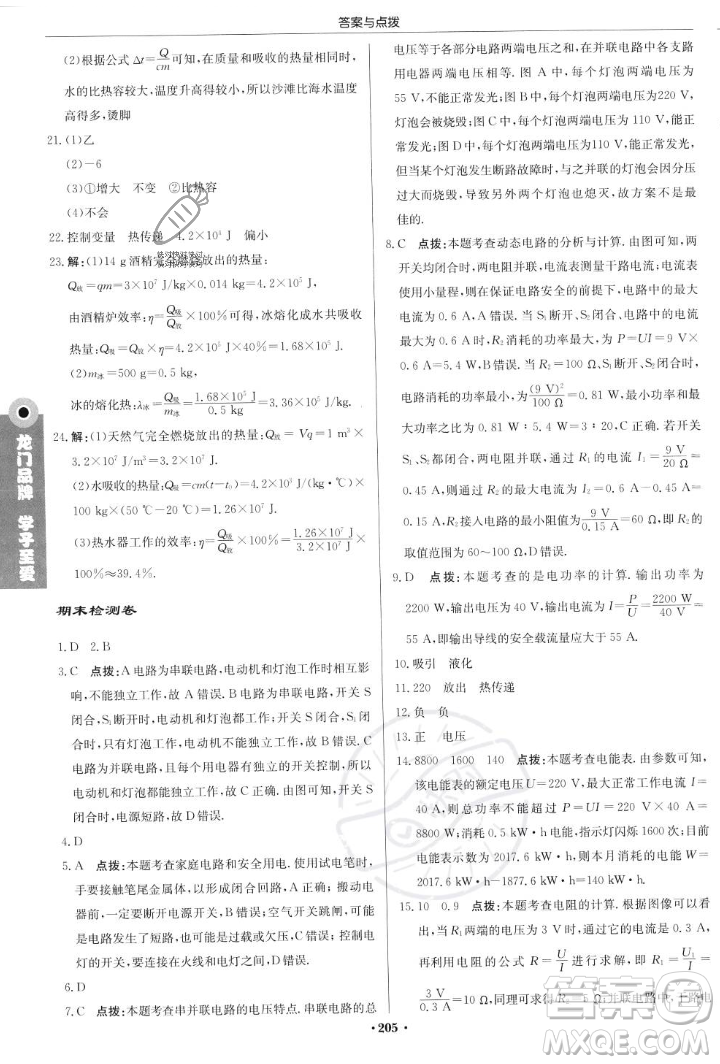 答案与点拨
(2)根据公式 Δt=Q/cm可知,在质量和吸收的热量相同时,
水的比热容较大,温度升高得较小,所以沙滩比海水温度
高得多,烫脚
21.(1)乙
(2)-6
(3)①增大 不变 ②比热容
(4)不会
22.控制变量 热传递 4.2×10⁴ J 偏小
23.解:(1)14 g酒精完全燃烧放出的热量:
Q放=qm=3×10⁷ J/kg×0.014 kg=4.2×10⁵ J,
由酒精炉效率:η=Q吸/Q放×100%可得,冰熔化成水共吸收
热量:Q吸=ηQ放=40%×4.2×10⁵ J=1.68×10⁵ J.
(2)m冰=500 g=0.5 kg,
冰的熔化热:λ冰=Q吸/m冰=1.68×10⁵ J/0.5 kg=3.36×10⁵ J/kg.
24.解:(1)天然气完全燃烧放出的热量:Q放=Vq=1 m³×
3.2×10⁷ J/m³=3.2×10⁷ J.
(2)水吸收的热量:Q吸=cm(t-t₀)=4.2×10³ J/(kg·℃)×
100 kg×(50 ℃-20 ℃)=1.26×10⁷ J.
(3)热水器工作的效率:η=Q吸/Q放×100%=1.26×10⁷ J/3.2×10⁷ J×
100%≈39.4%.
期末检测卷
1.D 2.B
3.C 点拨:A电路为串联电路,电动机和灯泡工作时相互影
响,不能独立工作,故A错误.B电路为并联电路,开关S
闭合,S₁断开时,电动机和灯泡都工作;开关S、S₁都闭合
时,只有灯泡工作,灯泡不能独立工作,故B错误.由图可知
此电路为并联电路,且每个用电器有独立的开关控制,所以
C正确.D电路为并联电路,但是开关S₁不能控制灯泡,开关
S闭合时,电动机和灯泡都工作,故D错误.
4.D
5.A 点拨:本题考查家庭电路和安全用电.使用试电笔时,
手要接触笔尾金属体,以保证形成电流通路;搬动电器
时,要做到断开电源开关;空气开关跳闸,可能是电路
发生了短路,也可能是过载或欠压,要注意区分;控制电
灯的开关,要连接在火线和电灯之间,以保证安全.
6.D
7.C 点拨:本题考查串并联电路的电压特点.串联电路的总
电压等于各部分电路两端电压之和,在并联电路中各支路
用电器两端电压相等.图A中,每个灯泡两端电压为
55 V,不能正常发光;图B中,每个灯泡两端电压为220 V,
灯泡会被烧毁;图C中,每个灯泡两端电压为110 V,能正
常发光;图D中,每个灯泡两端电压为110 V,能正常发
光,但某个灯泡发生断路故障时,与之并联的灯泡会因分压
过大而烧毁,导致另外两个灯泡也熄灭,故方案C是最
佳的.
8.C 点拨:本题考查动态电路的分析与计算.由图可知,两
开关均闭合时,两电阻并联,电流表测量干路电流,电流表
使用小量程,则在保证电路安全的前提下,电路中的最大电
流为0.6 A,A、B错误.电路消耗的最大功率P=UI=9 V×
0.6 A=5.4 W,当R₂接入电路的电阻最大时,电路功率最小,
电路消耗的功率最小为(9 V)²/100 Ω=0.81 W,所以电路消耗
的功率最大与最小之比为0.81 W+5.4 W=6.21 W,C正确.若开关
S₁、S₂都闭合,两电阻并联,通过R₁的电流不变,仍为
0.45 A,则通过R₂的电流最大为I₂=I-I₁=0.6 A-
0.45 A,R₂接入电路的最小阻值为9 V/0.15 A=60 Ω,即R₂的
取值范围为60~100 Ω,D错误.
9.D 点拨:本题考查的是电功率的计算.输出功率为
2200 W,输出电压为40 V,输出电流为I=P/U=2200 W/40 V=
55 A,即输出导线的安全载流量应大于55 A.
10.吸引 液化
11.220 放出 热传递
12.负 负
13.正 电压
14.8800 1600 140 点拨:本题考查电能表.由参数可知,
该电能表的额定电压U=220 V,最大正常工作电流I=
40 A,则允许总功率最大为P=UI=220 V×40 A=
8800 W;消耗0.5 kW·h电能,指示灯闪烁1600次;当月
电能表示数为2017.6 kW·h,则本月消耗的电能W=
2017.6 kW·h-1877.6 kW·h=140 kW·h.
15.10 0.9 点拨:本题考查电阻的计算.根据图像可以看
出,当R₁两端的电压为3 V时,通过它的电流是0.3 A,
再利用电阻的公式R=U/I进行求解,即R₁=U/I=
3 V/0.3 A=10 Ω,同理可求得
龙门品牌 学子至爱
· 205 ·